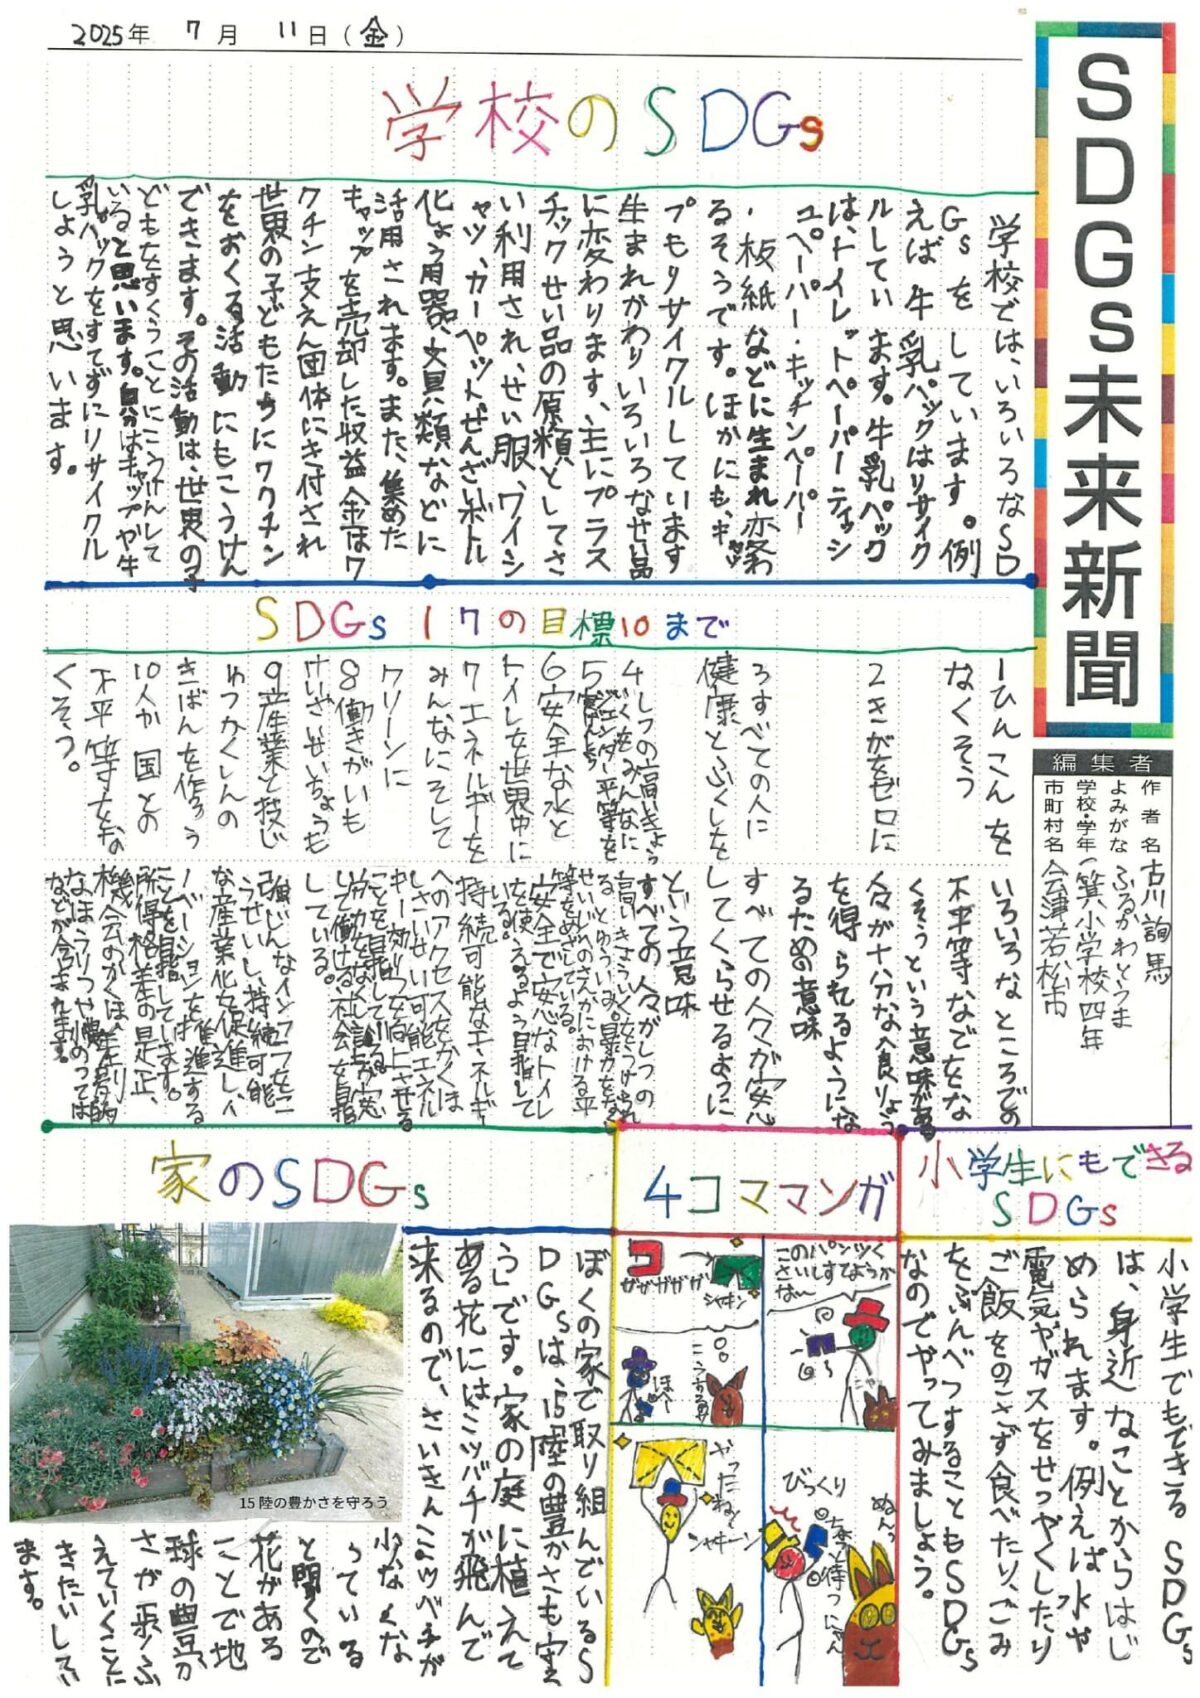 2025年 7月 11日(金)
SDGs未来新聞
編集者
作者名 古川詢馬
よみがな ふるかわとうま
学校・学年 一箕小学校四年
市町村名 会津若松市
学校のSDGs
学校では、いろいろなSD
Gsをしています。例
えば牛乳パックはリサイク
ルしています。牛乳パック
は、トイレットペーパーティッシ
ュペーパー・キッチンペーパー
・板紙などに生まれ変わ
るそうです。ほかにも、キャッ
プもリサイクルしています
生まれかわりいろいろなせい品
に変わります、主にプラス
チックせい品の原類としてさ
い利用され、せい服、ワイシ
ャツ、カーペットぜんざいボトル
化しょう用器、文具類などに
活用されます。また、集めた
キャップを売却した収益金はワ
クチン支えん団体にき付され
世界の子どもたちにワクチン
をおくる活動にもこうけん
できます。その活動は、世界の子
どもをすくうことにこうけんして
いると思います。自分はキャップや牛
乳パックをすてずにリサイクル
しようと思います。
SDGs17の目標10まで
1ひんこんを
なくそう
2きがをゼロに
3すべての人に
健康とふくしを
4しつの高いきょう
いくをみんなに
5ジェンダー平等を
6安全な水と
トイレを世界中に
7エネルギーを
みんなにそして
クリーンに
8働きがいも
けいざいせいちょうも
9産業と技じ
ゅつかくしんの
きばんを作ろう
10人か国との
不平等をな
くそう。
いろいろなところでの
不平等なでをな
くそうという意味がある
人々が十分な食りょう
を得られるようにな
るための意味
すべての人々が安
してくらせるように
という意味
すべての人々がしつの
高いきょういくをうけられ
るとゆういみ。暴力をな
せいじのさんかにおける平
等をめざしている。
安全で安心なトイレ
を使えるよう目指して
いる。
持続可能なエネルギ
へのアクセスをかくほ
しさいせい可能エネル
ギー効りつを向上させる
ことを目指している。
して働ける社会を目指
している。
強じんなインフラをこ
うせいし、持続可能
な産業化を促進し、イ
ノベーションを推進する
ことを目指しています。
所得格差の是正、
機会のかくほ、差別的
なほうりつや慣のてっぱ
などが含まれます。
小学生にもできる
SDGs
小学生でもできるSDGs
は、身近なことからはじ
められます。例えば水や
電気やガスをせつやくしたり
ご飯をのこさず食べたり、ごみ
をぶんべつすることもSDGs
なのでやってみましょう。
4コママンガ
このパンツく
さいしすてようか
な〜
ニャ
コ
ザザザザザ
シャキン
こうするのさ
ほへ〜
びっくり
ぬんっ
ちょっと待つにゃん
やったね!
シャキーン
家のSDGs
ぼくの家で取り組んでいるS
DGsは、「15陸の豊かさも守
う」です。家の庭に植えて
ある花にはミツバチが飛んで
来るので、さいきんミツバチが
少なくな
っている
と聞くので
花がある
ことで地
球の豊か
さが示ふ
えていくことに
きたいしてい
ます。
15 陸の豊かさを守ろう